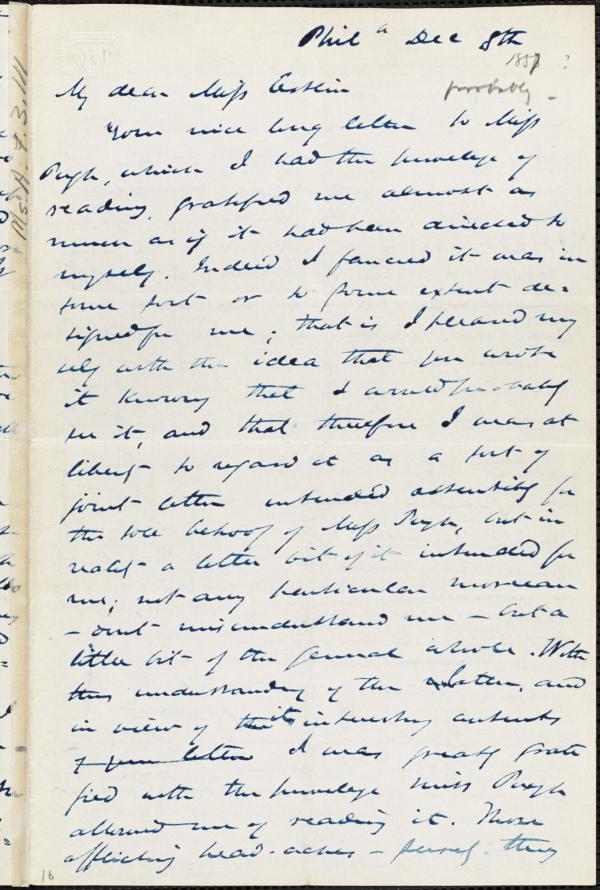 Phil^a Dec 8th
1857 ?
probably
My dear Miss Estlin
Your nice long letter to Miss
Pugh, which I had the privilege of
reading, gratified me almost as
much as if it had been directed to
myself. Indeed I fancied it was in
some sort or to some extent de=
signed for me; that is I pleased my
self with the idea that you wrote
it knowing that I would probably
see it, and that therefore I was at
liberty to regard it as a sort of
joint letter intended ostensibly for
the sole behoof of Miss Pugh, but in
reality a letter bit of it intended for
me; not any particular morceau
- don't misunderstand me - but a
little bit of the general whole. With
this understanding of the letter, and
in view of its interesting contents
of your letter I was greatly grati
fied with the privilege Miss Pugh
allowed me of reading it. Those
afflicting head-aches - they
Ms. A. 7. 3. 111
16